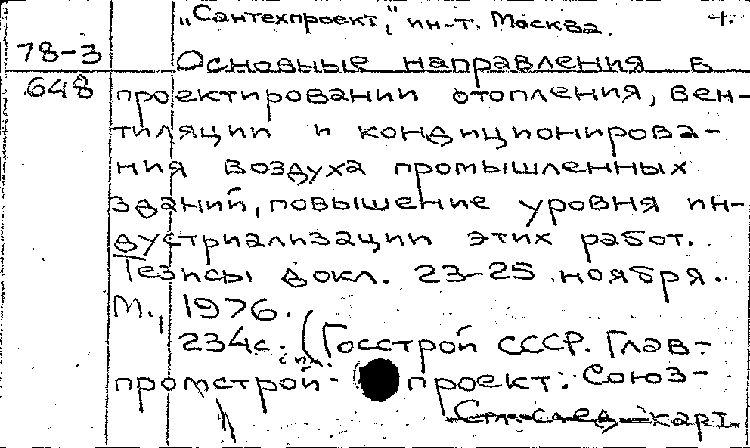 „Сантехпроект", ин-т. Москва.
78-3
648
Основные направления в
проектировании отопления, вен-
тиляции и кондиционирова-
ния воздуха промышленных
зданий, повышение уровня ин-
дустриализации этих работ.
Тезисы докл. 23-25 ноября.
М., 1976.
234с. (Госстрой СССР. Глав-
промстрой- проект. Союз-
См. след. карт.